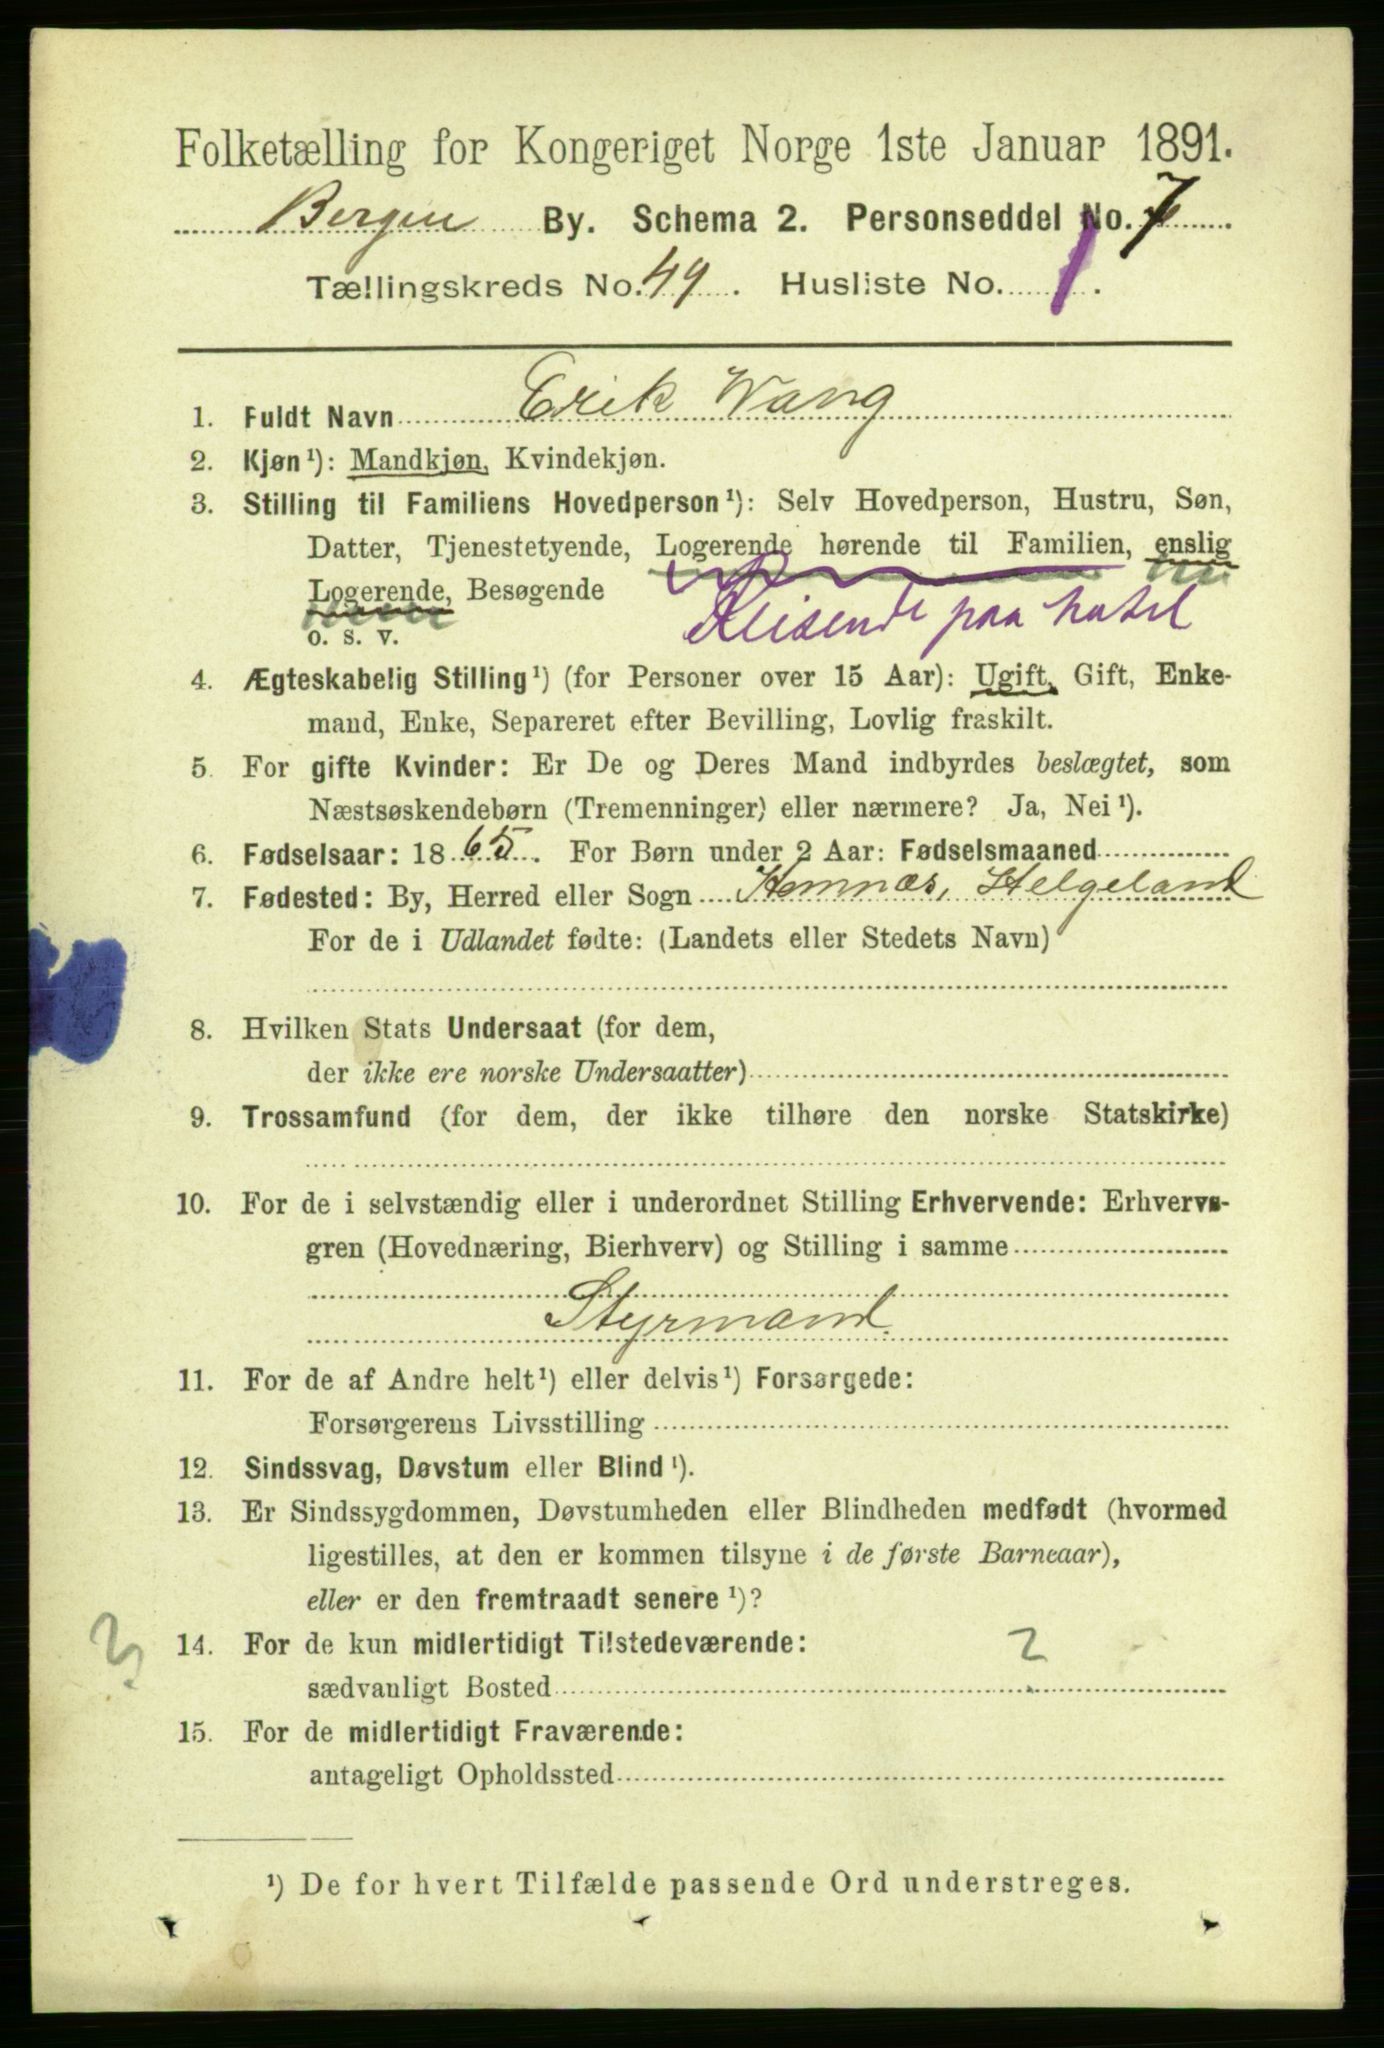 Folketælling for Kongeriget Norge 1ste Januar 1891.
Bergen By. Schema 2. Personseddel No. 7
Tællingskreds No. 49. Husliste No. 1.
1. Fuldt Navn Erik Wang
2. Kjøn¹): Mandkjøn, Kvindekjøn.
3. Stilling til Familiens Hovedperson¹): Selv Hovedperson, Hustru, Søn,
Datter, Tjenestetyende, Logerende hørende til Familien, enslig
Logerende, Besøgende
Reisende paa hotel
o. s. v.
4. Ægteskabelig Stilling¹) (for Personer over 15 Aar): Ugift, Gift, Enke-
mand, Enke, Separeret efter Bevilling, Lovlig fraskilt.
5. For gifte Kvinder: Er De og Deres Mand indbyrdes beslægtet, som
Næstsøskendebørn (Tremenninger) eller nærmere? Ja, Nei¹).
6. Fødselsaar: 1865. For Børn under 2 Aar: Fødselsmaaned
7. Fødested: By, Herred eller Sogn Hemnæs, Helgeland
For de i Udlandet fødte: (Landets eller Stedets Navn)
8. Hvilken Stats Undersaat (for dem,
der ikke ere norske Undersaatter)
9. Trossamfund (for dem, der ikke tilhøre den norske Statskirke)
10. For de i selvstændig eller i underordnet Stilling Erhvervende: Erhvervs-
gren (Hovednæring, Bierhverv) og Stilling i samme
Styrmand
11. For de af Andre helt¹) eller delvis¹) Forsørgede:
Forsørgerens Livsstilling
12. Sindssvag, Døvstum eller Blind¹).
13. Er Sindssygdommen, Døvstumheden eller Blindheden medfødt (hvormed
ligestilles, at den er kommen tilsyne i de første Barneaar),
eller er den fremtraadt senere¹)?
14. For de kun midlertidigt Tilstedeværende:
sædvanligt Bosted
15. For de midlertidigt Fraværende:
antageligt Opholdssted
¹) De for hvert Tilfælde passende Ord understreges.